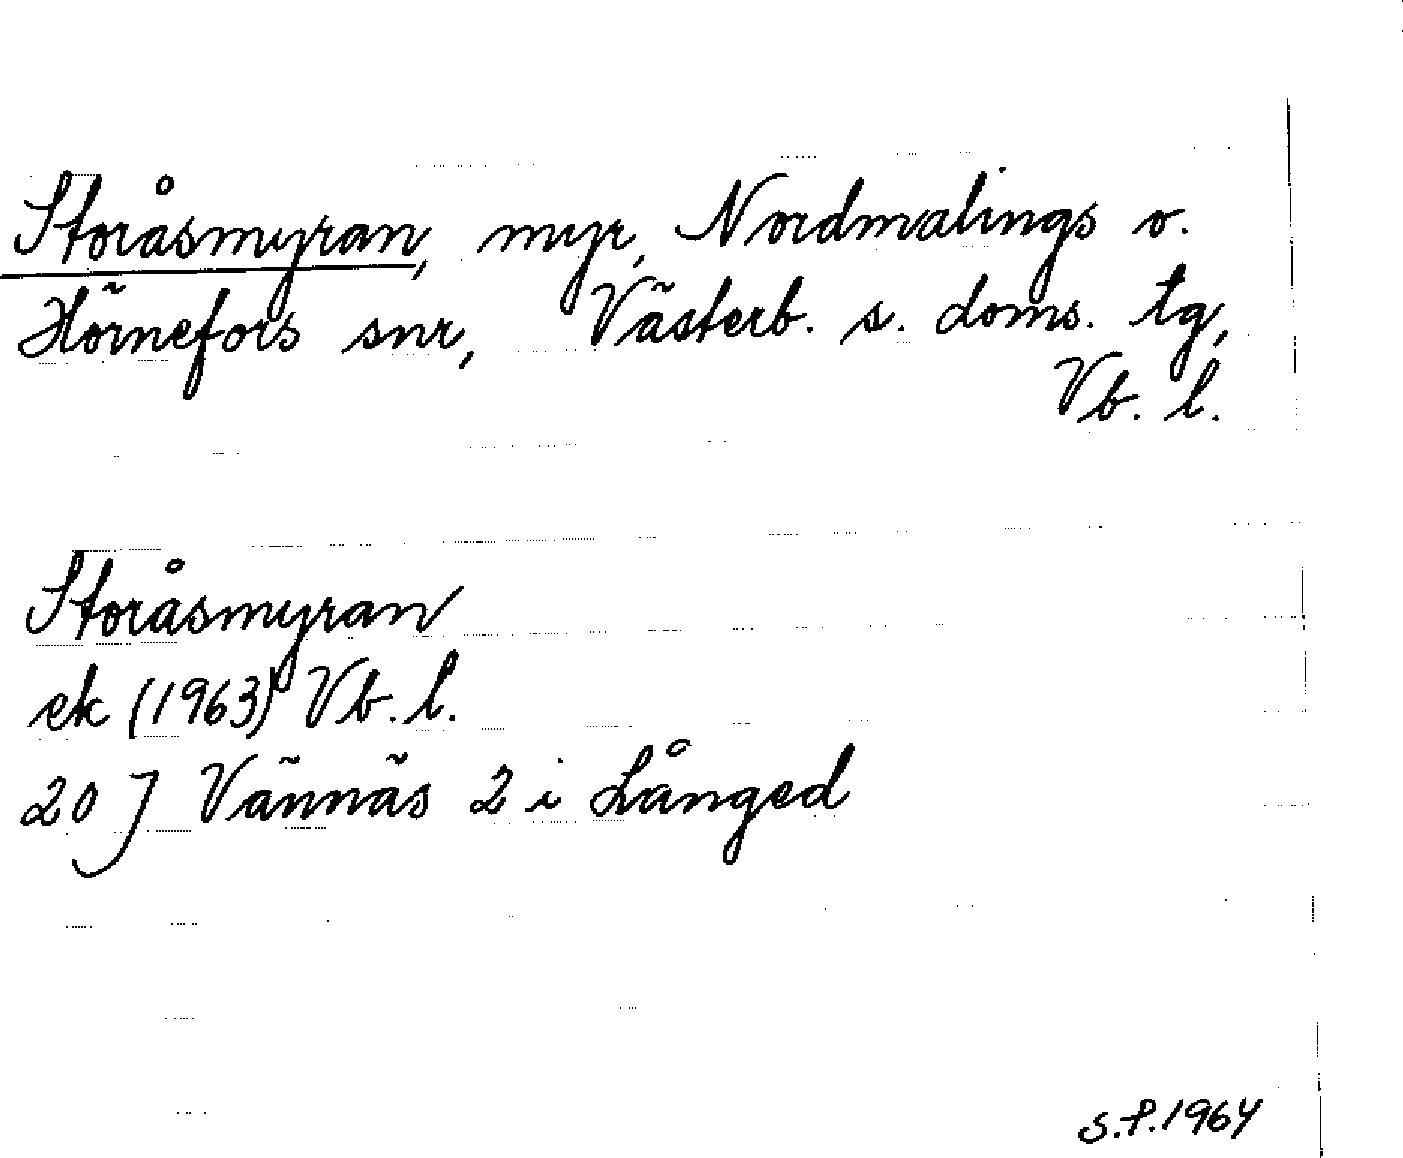 Storåsmyran, myr, Nordmalings o.
Hörnefors snr, Västerb. s. doms. tg,
Vb. l.
Storåsmyran
ek (1963) Vb. l.
20 J Vännäs 2 i Långed
S.P. 1964